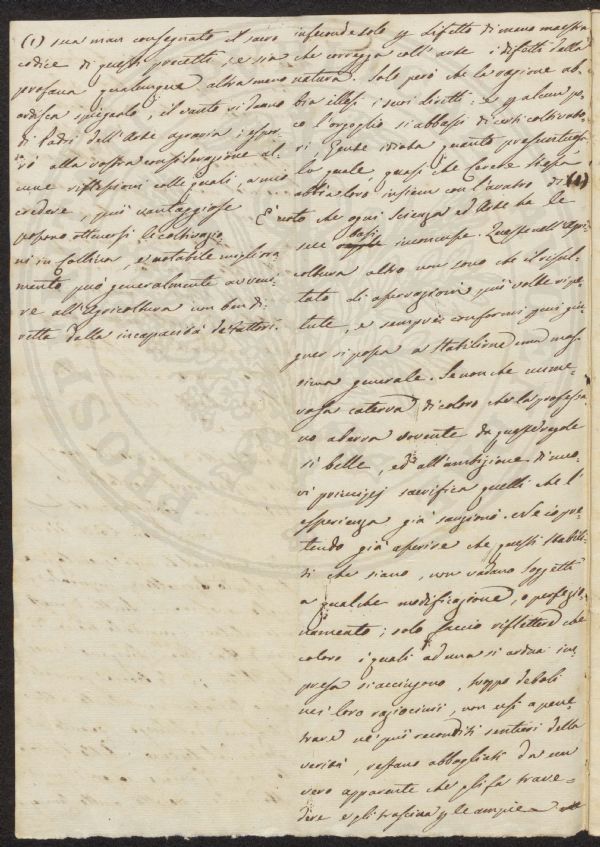 (1) sua man consegnato il sacro
codice di questi precetti, e sia che
profana qualunque altra meno
ardisca spiegarlo, il vanto si danno
di Padri dell'Arte agraria; espor-
rò alla vostra considerazione al-
cune riflessioni colle quali, a mio
credere, più vantaggiose
possono ottenersi le coltivazio-
ni in Collina, e notabile migliora-
mento può generalmente avveni-
re all'Agricoltura non ben di-
retta dalla incapacità de' fattori.
infeconde solo p difetto di mano maestra
che corregga coll'arte i difetti della
natura: solo però che la ragione ab-
bia illesi i suoi diritti: e p alcun po-
co l'orgoglio si abbassi di certi coltivato-
ri Gente idiota quanto presuntuosa
la quale, quasi che Cerere stessa
abbia loro insiem con l'aratro di (1)
È noto che ogni Scienza ed Arte ha le
sue basi inconcusse. Queste nell'Agri-
coltura altro non sono che il risul-
tato di osservazioni più volte ripe-
tute, e sempre conformi onde giu-
gner si possa a stabilirne una mas-
sima generale. Se non che nume-
rosa caterva di coloro che la professa-
no aberra sovente da queste regole
sì belle, ed all'ambizione di nuo-
vi principj sacrifica quelli che l'
esperienza già sanzionò. Né io pre-
tendo già asserire che questi stabili-
ti che siano, non vadano soggetti
a qualche modificazione, o perfezio-
namento; solo faccio riflettere che
coloro i quali ad una sì ardua im-
presa si accingono, troppo deboli
nei loro raziocinii, non usi a pene-
trare ne' più reconditi sentieri della
verità, restano abbagliati da un
vero apparente che gli fa trave-
dere e gli trascina p le ampie